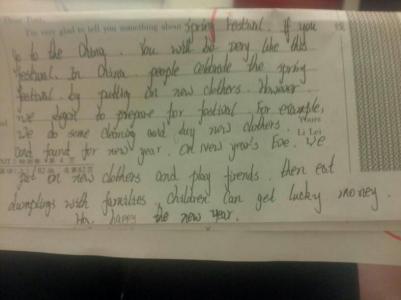 Dear Tom,
I'm very glad to tell you something about Spring Festival. If you
go to the China. You will be very like this
festival. In China people celebrate the spring
festival by putting on new clothers. However.
we begin to prepare for festival. For example,
we do some cleaning and buy new clothers. Yours
and found for new year. On New year's Eve. We Li Lei
put on new clothers and play firends. then eat
dumplings with families. Children can get lucky money.
happy the new year.